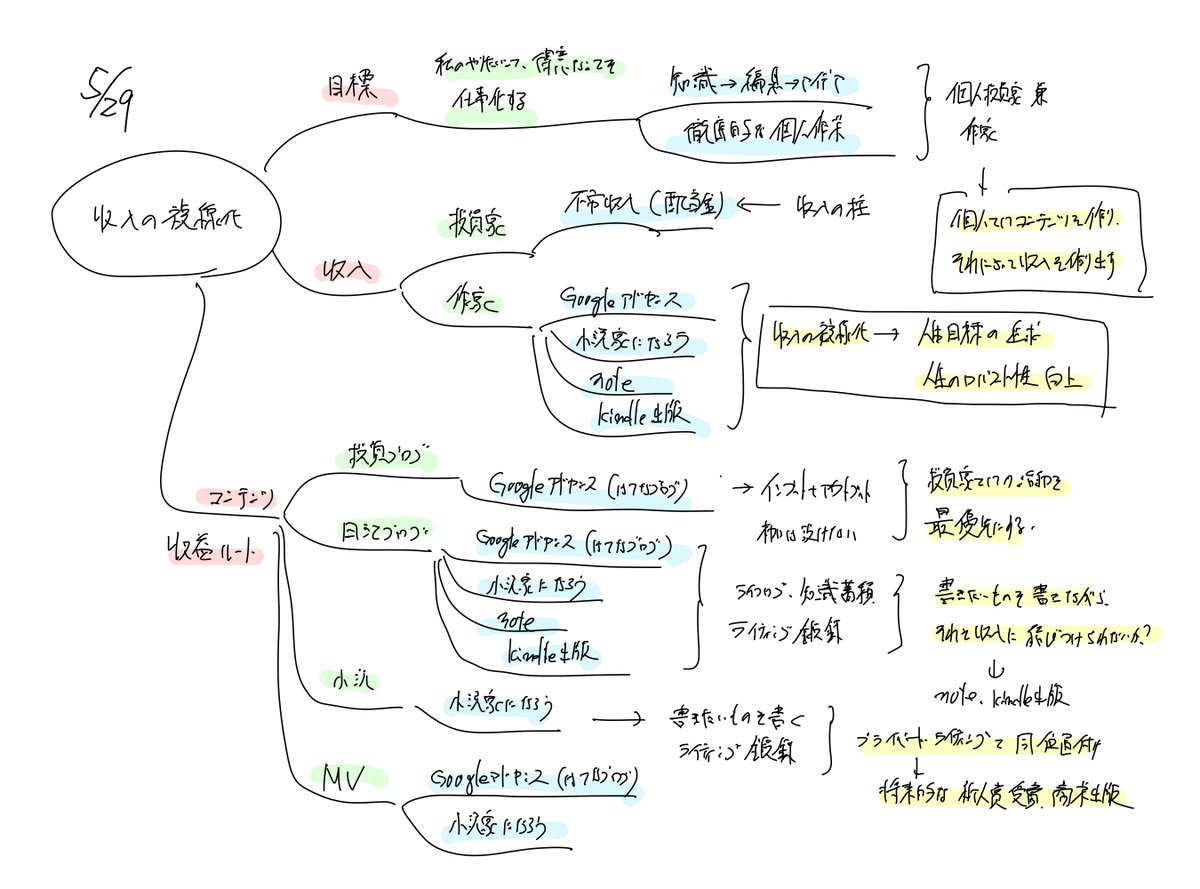 5/29
収入の複線化
目標
私のやりたいこと、得意なことを
仕事化する
知識→編集→アイデア
徹底的な個人作業
個人投資家 兼
作家
↓
個人でコンテンツを作り、
それによって収入を作り出す
収入
投資家
不労収入(配当金) ← 収入の柱
作家
Googleアドセンス
小説家になろう
note
kindle出版
収入の複線化 → 人生目標の追求
人生のロバスト性 向上
コンテンツ
収益ルート
投資ブログ
Googleアドセンス(はてなブログ)
→ インプット+アウトプット
投資家としての活動を
最優先にする。
日記ブログ
Googleアドセンス(はてなブログ)
小説家になろう
note
kindle出版
ライフログ、知識蓄積
ライティング鍛錬
書きたいものを書きながら、
それを収入に結びつけられないか?
↓
note、kindle出版
小説
小説家になろう
→ 書きたいものを書く
ライティング鍛錬
プライベートライティングと同
↓
将来的な新人賞受賞、商業出版
MV
Googleアドセンス(はてなブログ)
小説家になろう